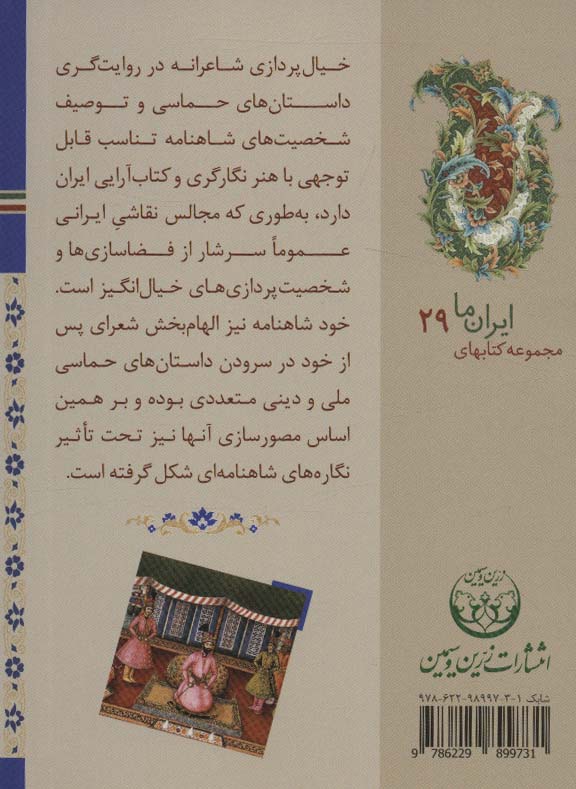 خیال‌پردازی شاعرانه در روایت‌گری
داستان‌های حماسی و توصیف
شخصیت‌های شاهنامه تناسب قابل
توجهی با هنر نگارگری و کتاب‌آرایی ایران
دارد، به‌طوری که مجالس نقاشیِ ایرانی
عموماً سرشار از فضاسازی‌ها و
شخصیت‌پردازی‌های خیال‌انگیز است.
خود شاهنامه نیز الهام‌بخش شعرای پس
از خود در سرودن داستان‌های حماسی
ملی و دینی متعددی بوده و بر همین
اساس مصورسازی آنها نیز تحت تأثیر
نگاره‌های شاهنامه‌ای شکل گرفته است.
ایران ما ۲۹
مجموعه کتابهای
زرین و سیمین
انتشارات زرّین و سیمین
شابک ۱-۳-۹۸۹۹۷-۶۲۲-۹۷۸
9 786229 899731